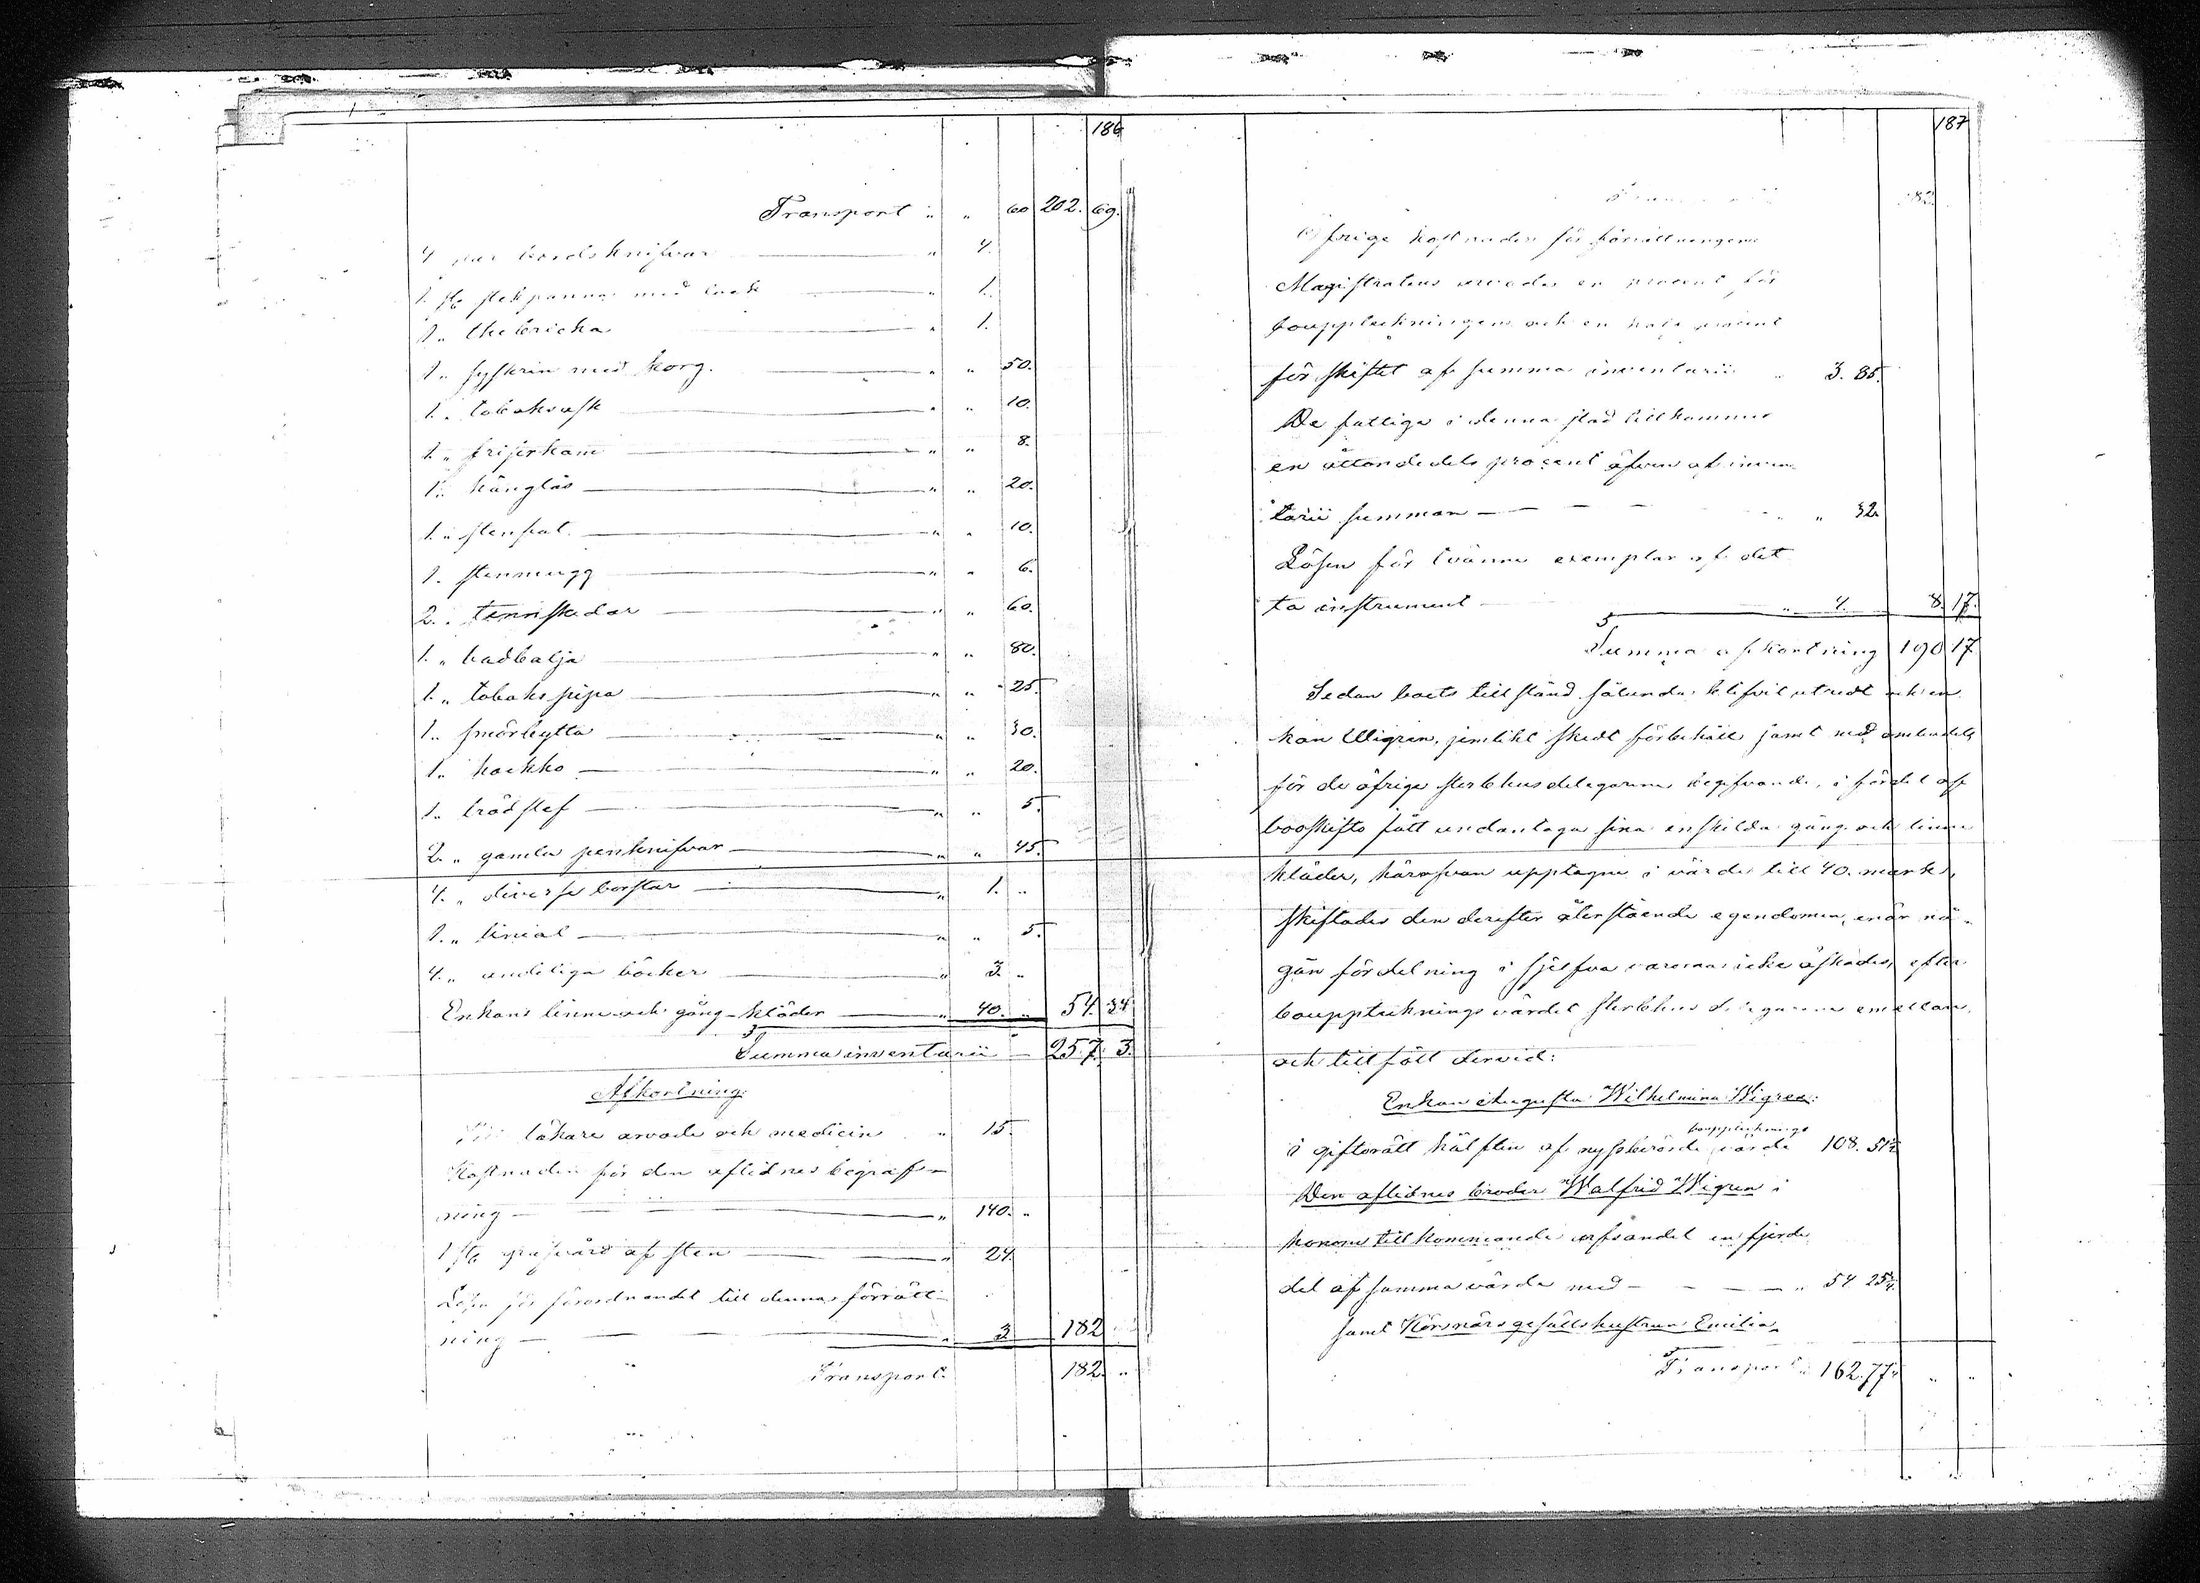 186
Transport " " 60 202. 69.
4 par bordsknifvar " 4.
1. st stekpanna med lock " 1.
1 " thebricka " 1.
1 " syskrin med korg. " " 50.
1. " tobaksask " " 10.
1. " friserkam " " 8.
1 " hänglås " " 20.
1. " stenfat. " " 10.
1. stenmugg " " 6.
2. " tennskedar " " 60.
1. " badbalja " " 80.
1. " tobakspipa " " 25.
1. " smörbytta " " 30.
1. " " " 20.
1. " trädslef " " 5.
2. " gamla penknifvar " " 45.
4. " diverse borstar " 1. "
1. " linial " " 5.
4. " andeliga böcker " 3. "
Enkans linne och gång-kläder " 40. " 54. 34
Summa inventarii 257. 3.
Afkortning:
Till läkare arvode och medicin " 15.
Kostnaden för den aflidnes begraf-
ning " 140. "
1 st grafvård af sten " 24.
Lösen för förordnandet till denna förrätt-
ning " 3 182
Transport. 182. "
187
Transport 182
Öfrige kostnader för förrättningen:
Magistratens arvode en procent för
bouppteckningen och en half procent
för skiftet af summa inventarii " 3. 85.
De fattige i denna stad tillkommer
en åttondedels procent äfven af inven-
tarii summan " " 32.
Lösen för tvänne exemplar af det-
ta instrument " 4. 8. 17.
Summa afkortning 190 17.
Sedan boets tillstånd sålunda blifvit utredt och en-
kan Wigren, jemlikt skedt förbehåll samt med ombudets
för de öfrige sterbhusdelegarene begifvande, i fördel af
booskifte fått undantaga sina enskilda gång och linne
kläder, härofvan upptagne i värde till 40. mark,
skiftades den derefter återstående egendomen, enär nå-
gon fördelning i sjelfva varorna icke äskades, efter
bouppteckningsvärdet sterbhusdelegarene emellan,
och tillföll dervid:
Enkan Augusta Wilhelmina Wigren:
i giftorätt hälften af nyssberörde bouppteckningsvärde 108. 51½
Den aflidnes broder Walfrid Wigren i
honom tillkommande arfsandel en fjerde
del af samma värde med " 54 25¾.
samt Körsnärsgesällshustrun Emilia
Transport " 162.77¼ " "